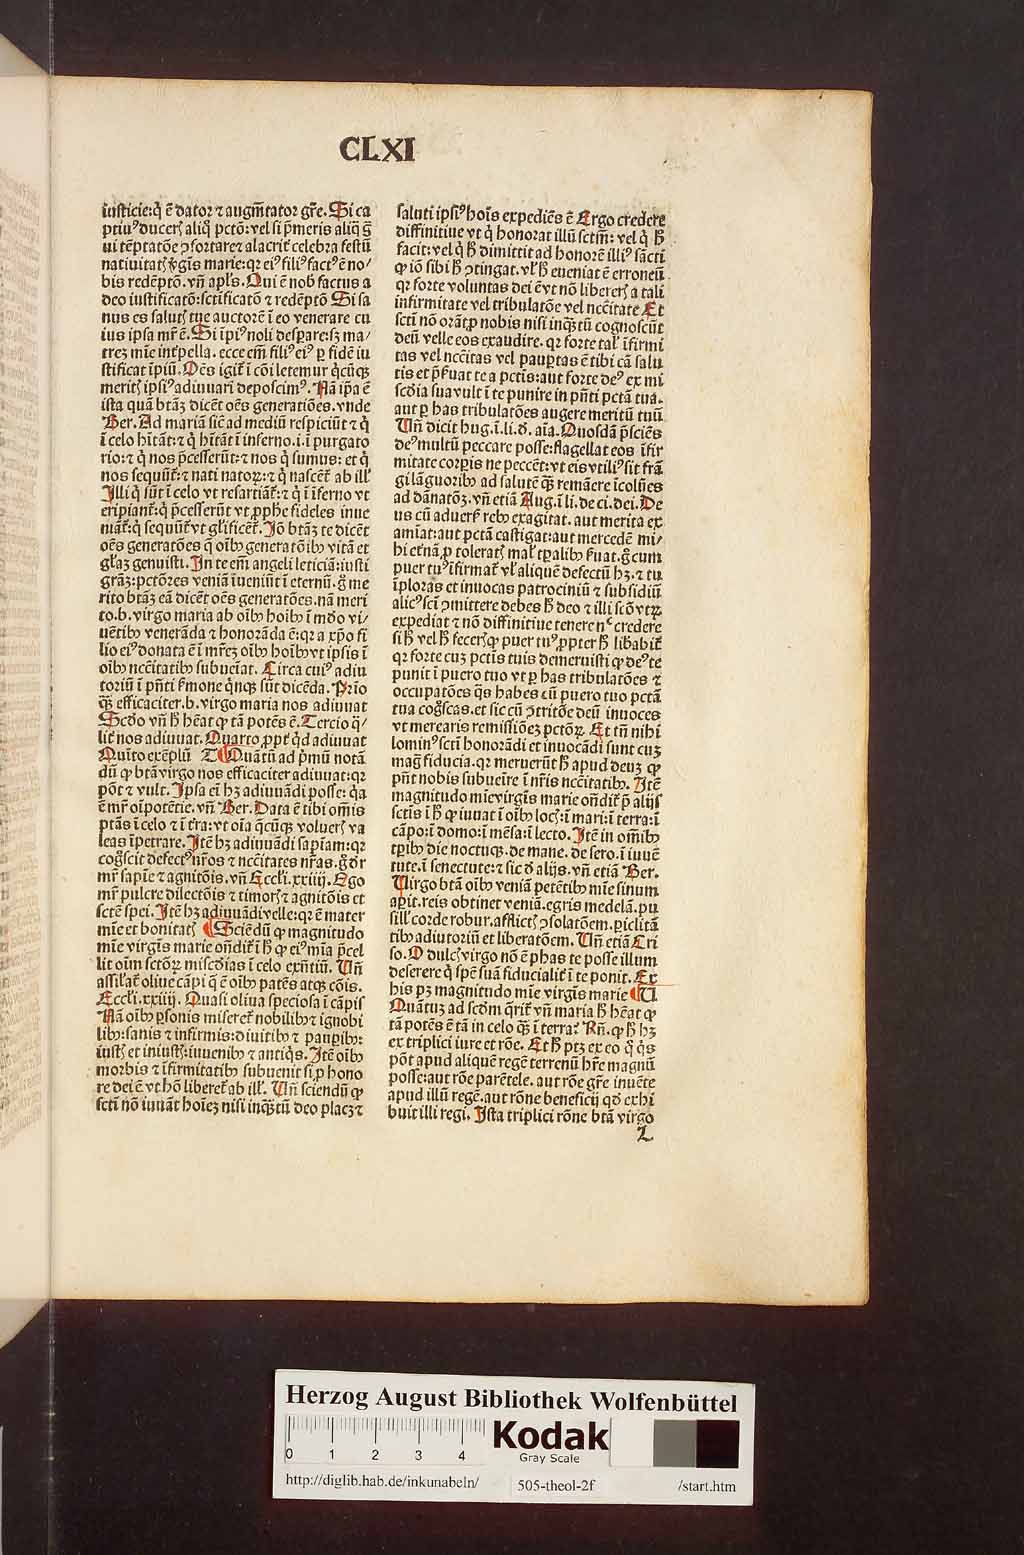 CLXI
iusticie:q̇ ē dator ⁊ augm̄tator gr̄e. Si ca
ptiuꝰ ducerꝭ aliq̇ pctō: vel si p̄meris aliq̇ g̅
ui tēptatōe ꝯfortareꝛ alacrit̉ celebra festū
natiuitatꝭ v̓gīs marie: qꝛ eiꝰ filiꝰ factꝰ ē no/
bis redēptō. vn̄ apl's. Qui ē nob̄ factus a
deo iustificatō: sctificatō ⁊ redēptō Si sa
nus es salutꝭ tue auctorē ī eo venerare cu
ius ipsa mr̄ ē. Si īpiꝰ noli desꝑare: sꝫ ma/
treꝫ mīe int̉pella. ecce em̄ filiꝰ eiꝰ ꝑ fidē iu
stificat īpiū. Oēs igit̉ ī cōi letemur q̇cūqꝫ
meritꝭ ipsiꝰ adiuuari deposcimꝰ. Nā ip̄a ē
ista quā btāꝫ dicēt oēs generatiōes. vnde
Ber. Ad mariā sic̄ ad mediū respiciūt ⁊ q̇
ī celo hītāt: ⁊ q̇ hītāt ī inferno. i. ī purgato
rio: ⁊ q̇ nos p̄cesserūt: ⁊ nos q̇ sumus: et q̇
nos sequūt̉: ⁊ nati natoꝝ: ⁊ q̇ nascēt̉ ab ill'
Illi q̇ sūt ī celo vt resartiāt̉: ⁊ q̇ ī īferno vt
eripiant̉: q̇ p̄cesserūt vt ꝓphe fideles inue
niāt̉: q̇ sequūt̉ vt gl'ificēt̉. Iō btāꝫ te dicēt
oēs generatōes q̄ oībꝰ generatōibꝰ vitā et
gl'aꝫ genuisti. In te em̄ angeli leticiā: iusti
grāꝫ: pctōꝛes veniā īueniūt ī eternū. g̊ me
rito btāꝫ eā dicēt oēs generatōes. nā meri
to. b. virgo maria ab oībꝰ hoībꝰ ī mōo vi/
uētibꝰ venerāda ⁊ honorāda ē: qꝛ a xp̄o fi
lio eiꝰ donata ē ī mr̄eꝫ oībꝰ hoībꝰ vt ipsis ī
oībꝰ nccītatibꝰ subueīat. Circa cuiꝰ adiu
toriū ī pn̄ti ẜmone q̇nqꝫ sūt dicēda. Prīo
qꝫ efficaciter. b. virgo maria nos adiuuat
Scd̄o vn̄ h̄ hēat ꝙ tā potēs ē. Tercio q̄/
lit̉ nos adiuuat. Quarto ꝓpt̉ qd̓ adiuuat
Quīto exēplū ¶ Quātū ad p̄mū notā
dū ꝙ btā virgo nos efficaciter adiuuat: qꝛ
pōt ⁊ vult. Ipsa em̄ hꝫ adiuuādi posse: q̇a
ē mr̄ oīpotētie. vn̄ Ber. Data ē tibi om̄is
ptās ī celo ⁊ ī t̉ra: vt oīa q̄cūqꝫ voluerꝭ va
leas īpetrare. Itē hꝫ adiuuādi sapīam: qꝛ
cog̊scit defectꝰ nr̄os ⁊ nccītates nr̄as. g̊ dr̄
mr̄ sapīe ⁊ agnitōis. vn̄ Eccl'i. xxiiij. Ego
mr̄ pulcre dilectōis ⁊ timorꝭ ⁊ agnitōis et
sctē spei. Itē hꝫ adiuuādi velle: qꝛ ē mater
mīe et bonitatꝭ ¶ Sciēdū ꝙ magnitudo
mīe virgīs marie on̄dit̉ ī h̄ ꝙ eiꝰ mīa p̄cel
lit oīm sctōꝝ misc̄dias ī celo exn̄tiū. Vn̄
assil'at̉ oliue cāpi q̄ ē oībꝰ patēs atqꝫ cōis.
Eccl'i. xxiiij. Quasi oliua speciosa ī cāpis
Nā oībꝰ ꝑsonis miseret̉ nobilibꝰ ⁊ ignobi
libꝰ: sanis ⁊ infirmis: diuitibꝰ ⁊ pauꝑibꝰ:
iustꝭ et iniustꝭ: iuuenibꝰ ⁊ antiq̇s. Itē oībꝰ
morbis ⁊ īfirmitatibꝰ subuenit si ꝓ hono
re dei ē vt hō liberet̉ ab ill'. Vn̄ sciendū ꝙ
sctī nō iuuāt hoīeꝫ nisi inqꝫtū deo placꝫ ⁊
saluti ipsiꝰ hoīs expediēs ē Ergo credere
diffinitiue vt q̇ honorat illū sctm̄: vel q̇ h̄
facit: vel q̇ h̄ dimittit ad honorē illiꝰ sācti
ꝙ iō sibi h̄ ꝯtingat. vl' h̄ eueniat ē erroneū
qꝛ forte voluntas dei ē vt nō libererꝭ a tali
infirmitate vel tribulatōe vel nccītate Et
sctī nō orāt ꝓ nobis nisi inqꝫtū cognoscūt
deū velle eos exaudire. qꝛ forte tal' īfirmi
tas vel nccītas vel pauꝑtas ē tibi cā salu
tis et p̄ẜuat te a pctīs: aut forte deꝰ ex mi
sc̄dia sua vult ī te punire in pn̄ti pctā tua.
aut ꝑ has tribulatōes augere meritū tuū.
Vn̄ dicit hug. ī. li. d̓. aīa. Quosdā p̄sciēs
deꝰ multū peccare posse: flagellat eos īfir
mitate corꝑis ne peccēt: vt eis vtiliꝰ sit frā
gi lāguoribꝰ ad salutē qꝫ remāere īcolūes
ad dānatōꝫ. vn̄ etiā Aug. ī li. de ci. dei. De
us cū aduerẜ rebꝰ exagitat. aut merita ex
amīat: aut pctā castigat: aut mercedē mi/
hi et̉nā ꝓ toleratꝭ mal' tꝑalibꝰ ẜuat. g̊ cum
puer tuꝰ īfirmat̉ vl' aliquē defectū hꝫ. ⁊ tu
īploras et inuocas patrociniū ⁊ subsidiū
alicꝰ sctī ꝯmittere debes h̄ deo ⁊ illi sctō vtꝝ
expediat ⁊ nō diffinitiue tenere nᶜ credere
si h̄ vel h̄ fecerꝭ ꝙ puer tuꝰ ꝓpter h̄ libabit̉
qꝛ forte cuꝫ pctīs tuis demeruisti ꝙ deꝰ te
punit ī puero tuo vt ꝑ has tribulatōes ⁊
occupatōes q̇s habes cū puero tuo pctā
tua cog̊scas. et sic cū ꝯtritōe deū inuoces
vt merearis remissiōeꝫ pctōꝝ. Et tn̄ nihi
lominꝰ sctī honorādi et inuocādi sunt cuꝫ
mag̊ fiducia. qꝛ meruerūt h̄ apud deuꝫ ꝙ
pn̄t nobis subueīre ī nr̄is nccītatibꝰ. Itē
magnitudo mīe virgīs marie on̄dit̉ p̄ alijs
sctīs ī h̄ ꝙ iuuat ī oībꝰ locꝭ: ī mari: ī terra: ī
cāpo: ī domo: ī mēsa: ī lecto. Itē in om̄ibꝰ
tꝑibꝰ die noctuqꝫ. de mane. de sero. ī iuuē
tute. ī senectute: ⁊ sic d̓ alijs. vn̄ etiā Ber.
Virgo btā oībꝰ veniā petētibꝰ mīe sinum
aꝑit. reis obtinet veniā. egris medelā. pu
sill' corde robur. afflictꝭ ꝯsolatōem. ꝑiclitā
tibꝰ adiutoriū et liberatōem. Vn̄ etiā Cri
so. O dulcꝭ virgo nō ē phas te posse illum
deserere q̇ spē suā fiducialit̉ ī te ponit. Ex
his pꝫ magnitudo mīe virgīs marie ¶ U
Quātuꝫ ad scd̄m q̄rit̉ vn̄ maria h̄ hēat ꝙ
tā potēs ē tā in celo qꝫ ī terra? Rn̄. ꝙ h̄ hꝫ
ex triplici iure et rōe. Et h̄ ptꝫ ex eo q̇ q̇s
pōt apud aliquē regē terrenū hr̄e magnū
posse: aut rōe parētele. aut rōe gr̄e inuēte
apud illū regē. aut rōne beneficij qd̓ exhi
buit illi regi. Ista triplici rōne btā virgo
L
Herzog August Bibliothek Wolfenbüttel
0 1 2 3 4
Kodak
Gray Scale
http://diglib.hab.de/inkunabeln/ 505-theol-2f /start.htm